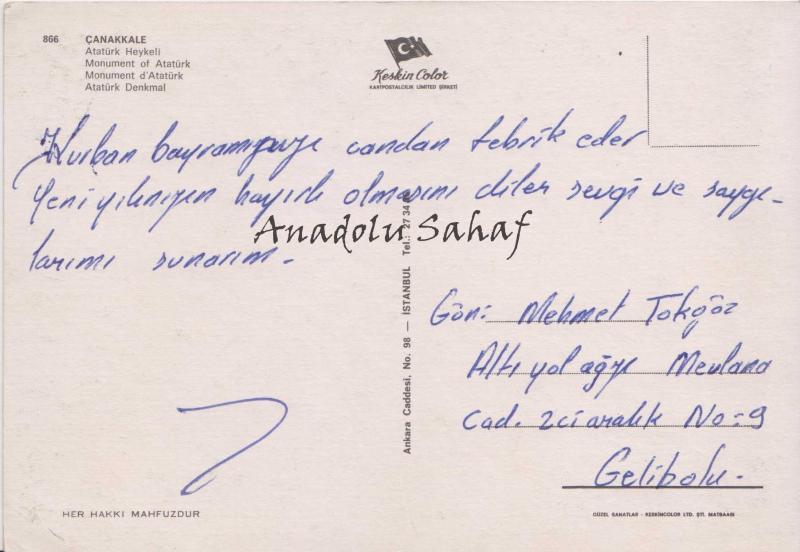 866 ÇANAKKALE
Atatürk Heykeli
Monument of Atatürk
Monument d'Atatürk
Atatürk Denkmal
Keskin Color
KARTPOSTALCILIK LİMİTED ŞİRKETİ
Kurban bayramınızı candan tebrik eder
Yeni yılınızın hayırlı olmasını diler sevgi ve saygı-
larımı sunarım-
Anadolu Sahaf
Ankara Caddesi, No. 98 — İSTANBUL Tel.: 27 34
Gön: Mehmet Tokgöz
Altı yol ağzı Mevlana
Cad. 2ci aralık No=9
Gelibolu-
HER HAKKI MAHFUZDUR
GÜZEL SANATLAR - KESKİNCOLOR LTD. ŞTİ. MATBAASI